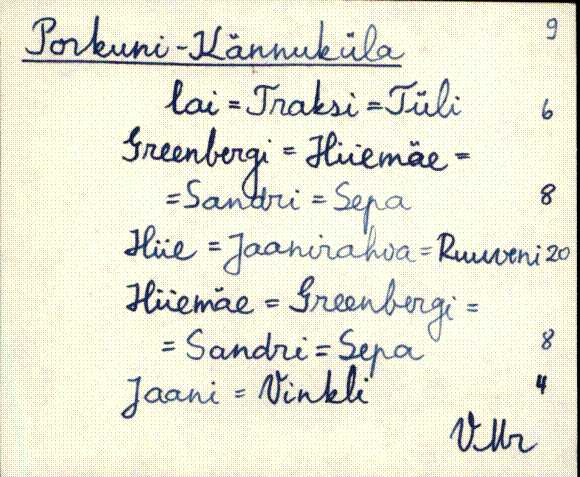 Porkuni-Kännuküla 9
lai = Traksi = Tüli 6
Greenbergi = Hiiemäe =
= Sandri = Sepa 8
Hiie = Jaanirahva = Ruuveni 20
Hiiemäe = Greenbergi =
= Sandri = Sepa 8
Jaani = Vinkli 4
VMr